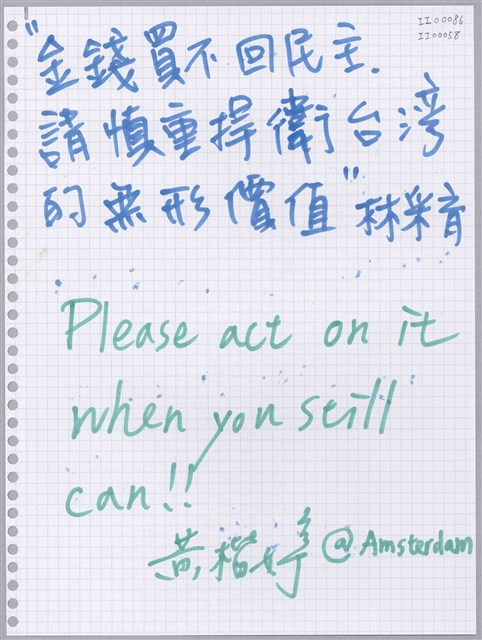 II00086
II00058
"金錢買不回民主.
請慎重捍衛台湾
的無形價值" 林采育
Please act on it
when you still
can!!
黃楷婷 @Amsterdam